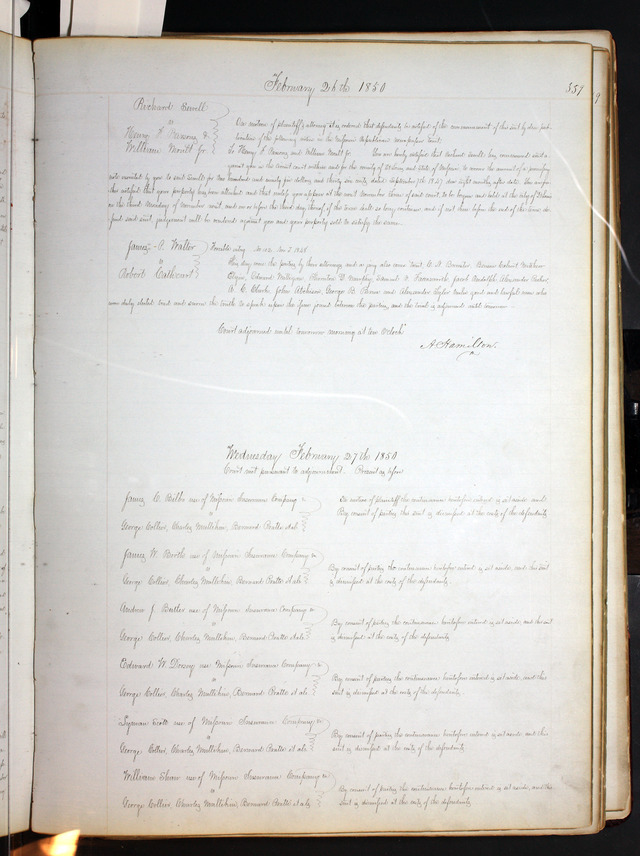 February 26th 1850
337
9
Richard Bewell
vs
Henry F
William Moritt Jr.
On motion of plaintiff's attorney it is ordered that defendants be notified of the commencement of this suit by due pub-
lication of the following notice in the Missouri Republican newspaper
To Henry F and William Moritt Jr. You are hereby notified that Richard has commenced suit a-
gainst you in the circuit court within and for the county of St Louis and State of Missouri to recover the amount of a promissory
note executed by you to said for two hundred and ninety five dollars and thirty six cents dated September 7th
notified that your property has been attached and that unless you appear at the next November term of said court, to be begun and held at the city of St Louis
on the third Monday of November next and on or before the third day thereof if the term shall so long continue and if not then before the end of the term
said suit, judgement will be rendered against you and your property sold to satisfy the same.
James A. Walter
vs
Robert Cathcart
Forcible entry
This day come the parties by their attorneys and a jury also come
Edward Milligan, Samuel Jacob Rudolph, Alexander
A. C. Clark, John Atchison, George B. and Alexander Taylor twelve good and lawful men who
were duly elected tried and sworn the truth to speak upon the issue joined between the parties, and the trial is adjourned until tomorrow
Court adjourned until tomorrow morning at ten O'clock
A Hamilton
Wednesday February 27th 1850
Court met pursuant to adjournment. Present as before
James C. Butler use of Missouri Insurance Company
vs
George Collier, Charles Mullikin, Bernard Pratte et als
On motion of plaintiff the continuance heretofore entered is set aside and
By consent of parties this suit is dismissed at the costs of the defendants
James W. Booth use of Missouri Insurance Company
vs
George Collier, Charles Mullikin, Bernard Pratte et als
By consent of parties the continuance heretofore entered is set aside, and this suit
is dismissed at the costs of the defendants.
Andrew J. Butler use of Missouri Insurance Company
vs
George Collier, Charles Mullikin, Bernard Pratte et als
By consent of parties the continuance heretofore entered is set aside, and this suit
is dismissed at the costs of the defendants
Edward W. Dosing use Missouri Insurance Company
vs
George Collier, Charles Mullikin, Bernard Pratte et als
By consent of parties the continuance heretofore entered is set aside, and this
suit is dismissed at the costs of the defendants
Lyman Scott use of Missouri Insurance Company
vs
George Collier, Charles Mullikin, Bernard Pratte et als
By consent of parties the continuance heretofore entered is set aside, and this
suit is dismissed at the costs of the defendants
William Shaw use of Missouri Insurance Company
vs
George Collier, Charles Mullikin, Bernard Pratte et als
By consent of parties the continuance heretofore entered is set aside, and this
suit is dismissed at the costs of the defendants